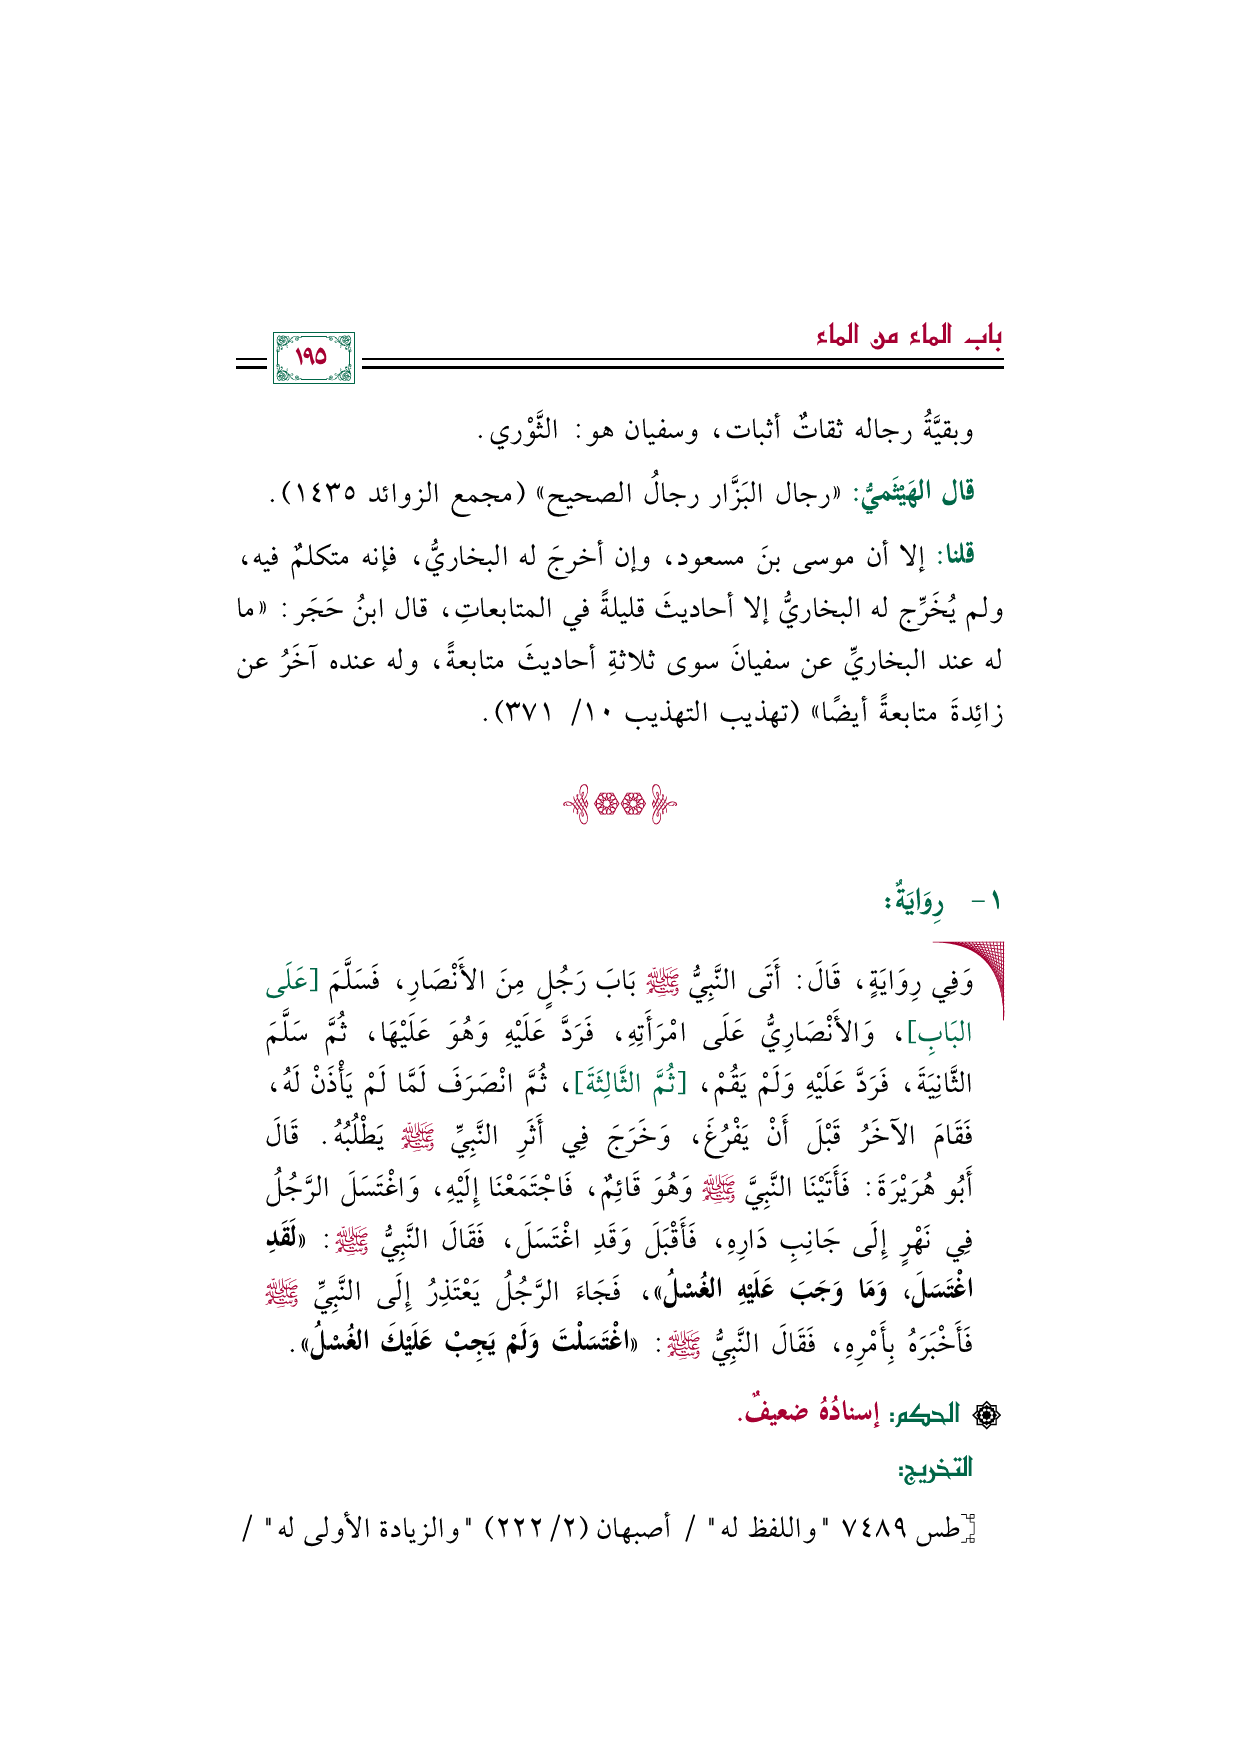 باب الماء من الماء
١٩٥
وبقيَّةُ رجاله ثقاتٌ أثبات، وسفيان هو: الثَّوْري.
قال الهَيْثَميُّ: «رجال البَزَّار رجالُ الصحيح» (مجمع الزوائد ١٤٣٥).
قلنا: إلا أن موسى بنَ مسعود، وإن أخرجَ له البخاريُّ، فإنه متكلمٌ فيه،
ولم يُخَرِّج له البخاريُّ إلا أحاديثَ قليلةً في المتابعاتِ، قال ابنُ حَجَر: «ما
له عند البخاريِّ عن سفيانَ سوى ثلاثةِ أحاديثَ متابعةً، وله عنده آخَرُ عن
زائِدةَ متابعةً أيضًا» (تهذيب التهذيب ١٠/ ٣٧١).
١- رِوَايَةٌ:
وَفِي رِوَايَةٍ، قَالَ: أَتَى النَّبِيُّ ﷺ بَابَ رَجُلٍ مِنَ الأَنْصَارِ، فَسَلَّمَ [عَلَى
البَابِ]، وَالأَنْصَارِيُّ عَلَى امْرَأَتِهِ، فَرَدَّ عَلَيْهِ وَهُوَ عَلَيْهَا، ثُمَّ سَلَّمَ
الثَّانِيَةَ، فَرَدَّ عَلَيْهِ وَلَمْ يَقُمْ، [ثُمَّ الثَّالِثَةَ]، ثُمَّ انْصَرَفَ لَمَّا لَمْ يَأْذَنْ لَهُ،
فَقَامَ الآخَرُ قَبْلَ أَنْ يَفْرُغَ، وَخَرَجَ فِي أَثَرِ النَّبِيِّ ﷺ يَطْلُبُهُ. قَالَ
أَبُو هُرَيْرَةَ: فَأَتَيْنَا النَّبِيَّ ﷺ وَهُوَ قَائِمٌ، فَاجْتَمَعْنَا إِلَيْهِ، وَاغْتَسَلَ الرَّجُلُ
فِي نَهْرٍ إِلَى جَانِبِ دَارِهِ، فَأَقْبَلَ وَقَدِ اغْتَسَلَ، فَقَالَ النَّبِيُّ ﷺ: «لَقَدِ
اغْتَسَلَ، وَمَا وَجَبَ عَلَيْهِ الغُسْلُ»، فَجَاءَ الرَّجُلُ يَعْتَذِرُ إِلَى النَّبِيِّ ﷺ
فَأَخْبَرَهُ بِأَمْرِهِ، فَقَالَ النَّبِيُّ ﷺ: «اغْتَسَلْتَ وَلَمْ يَجِبْ عَلَيْكَ الغُسْلُ».
الحكم: إسنادُهُ ضعيفٌ.
التخريج:
[طس ٧٤٨٩ "واللفظ له" / أصبهان (٢/ ٢٢٢) "والزيادة الأولى له" /